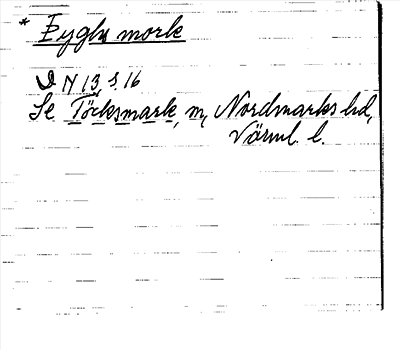 * Eyghs mork
N 13, s. 16
Se Töcksmark, m, Nordmarks hd,
Värml. l.